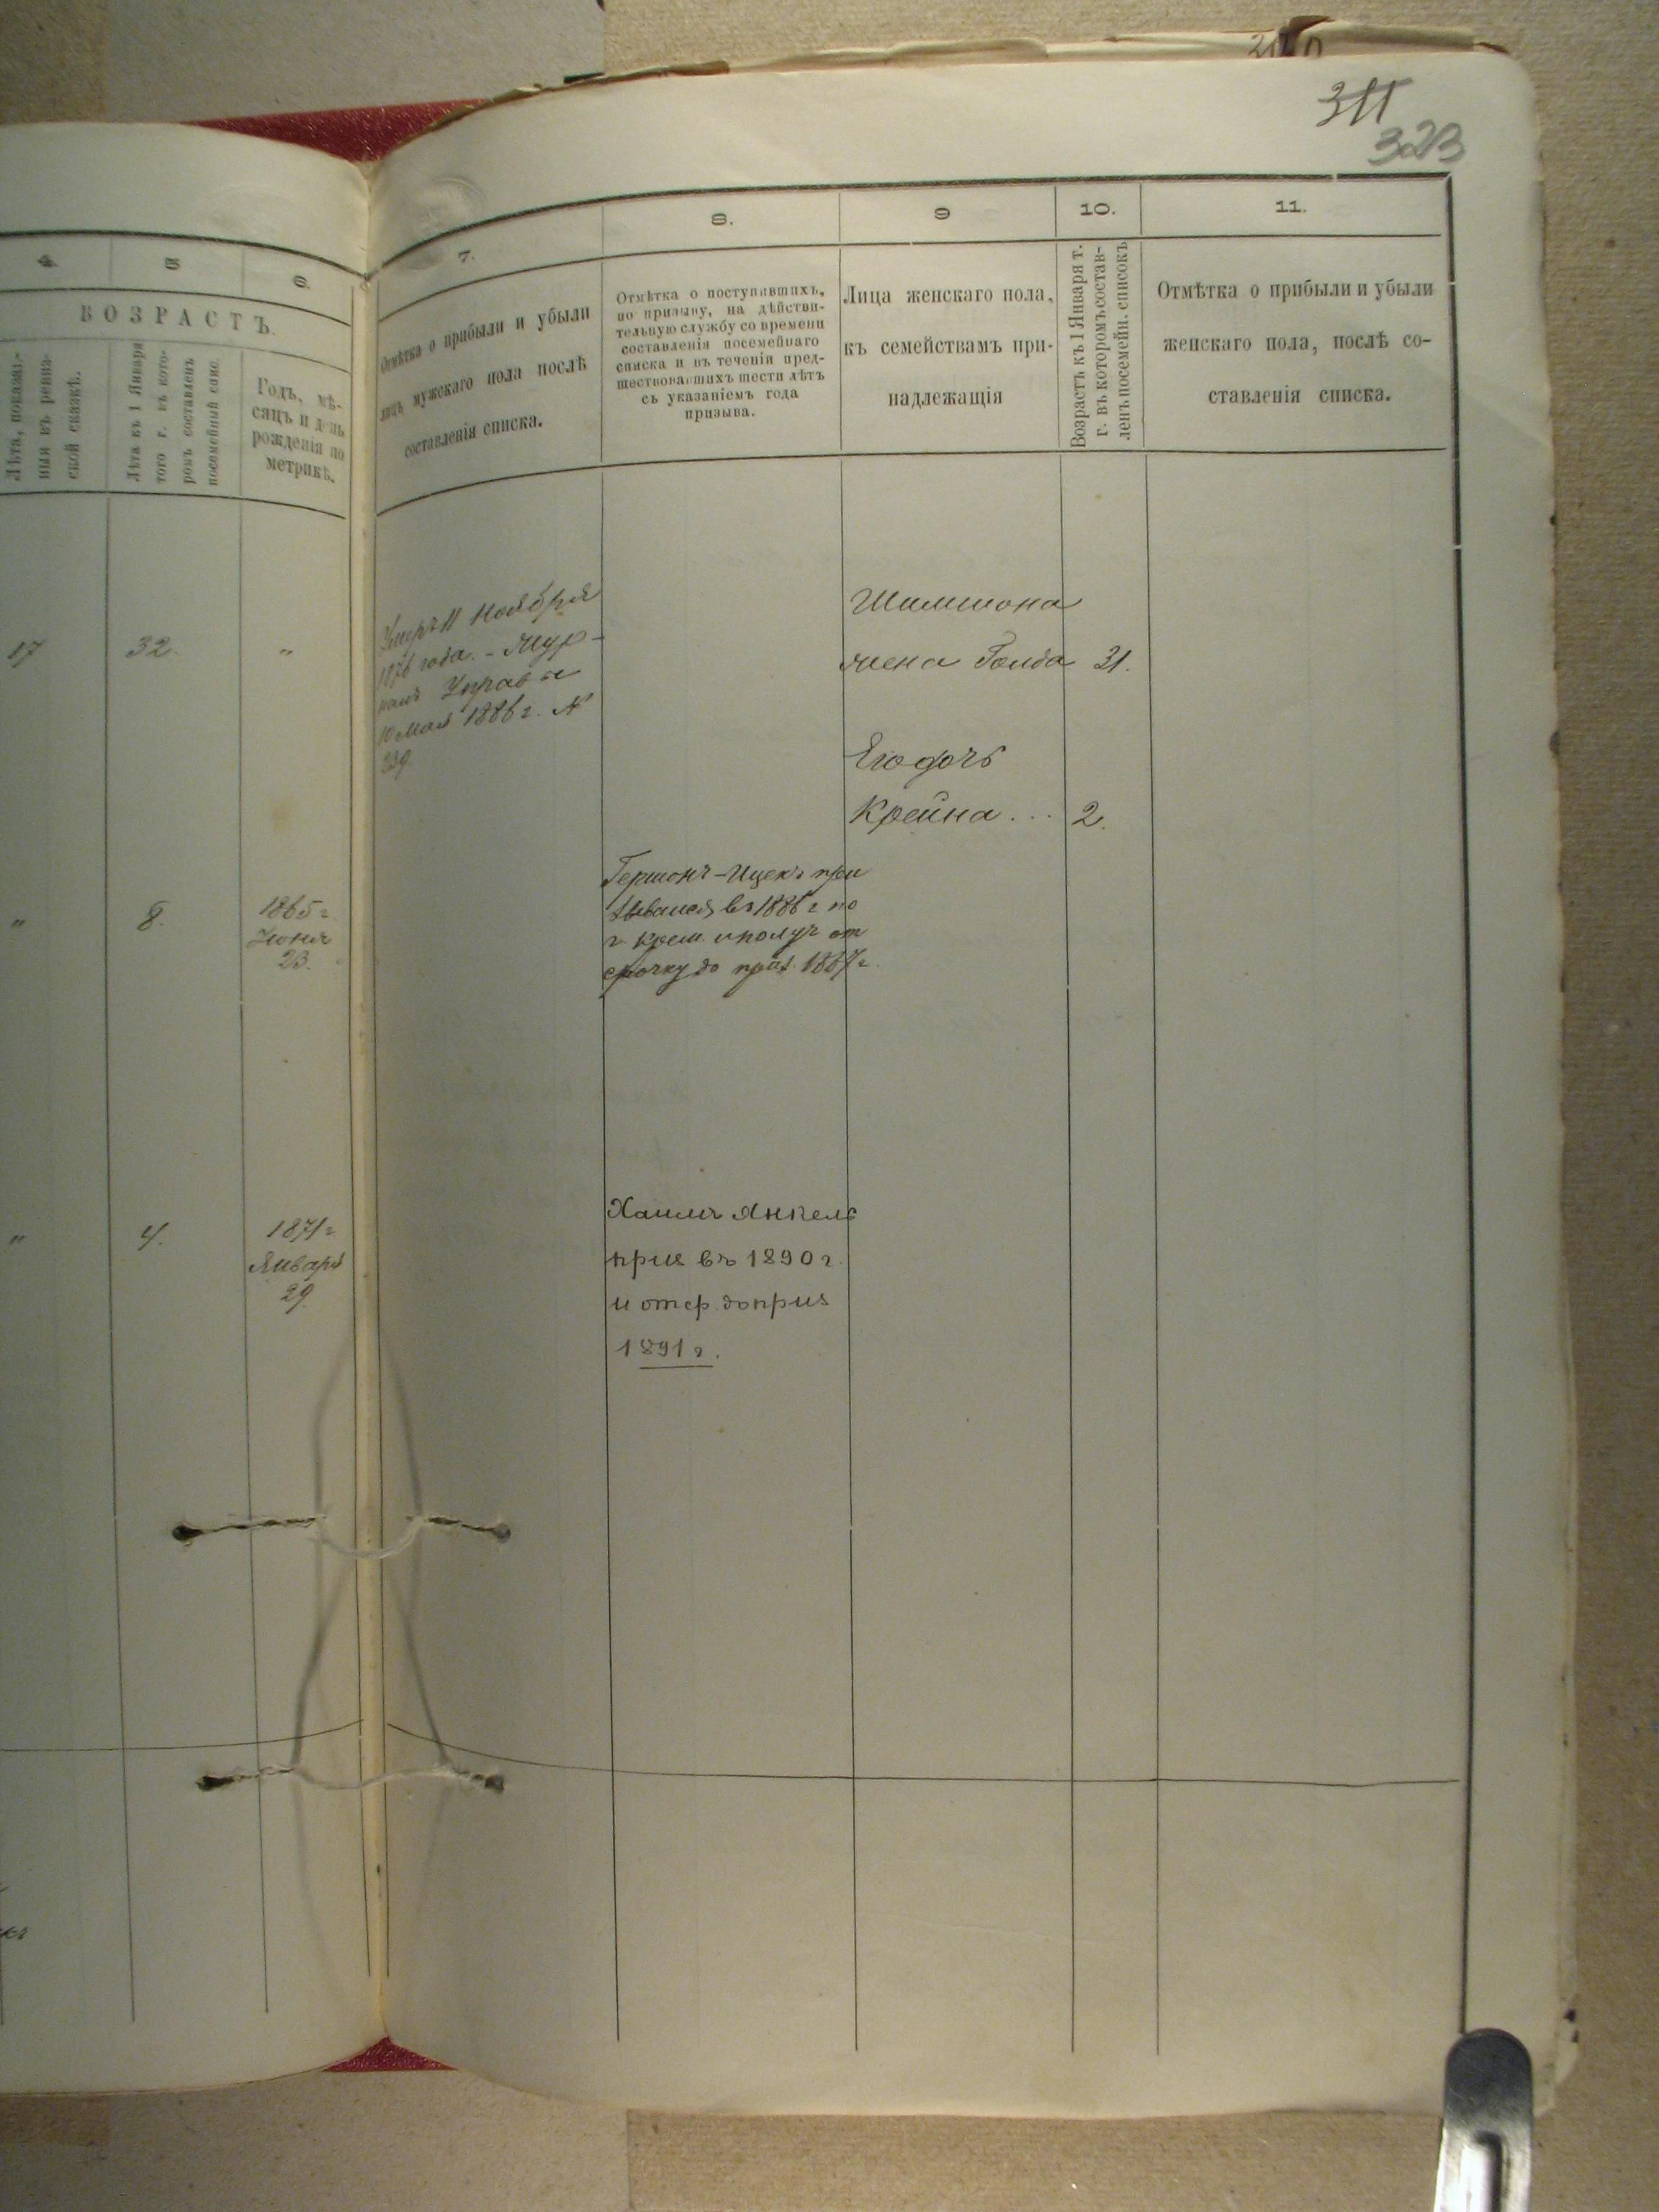 311
323
4.
5
6.
ВОЗРАСТЪ.
Лѣта, показан-
ныя въ ревиз-
ской сказкѣ.
Лѣта къ 1 Января
того г. въ кото-
ромъ составленъ
посемейный спис.
Годъ, мѣ-
сяцъ и день
рожденія по
метрикѣ.
17
32.
"
"
8.
1865 г
Іюня
23.
"
4.
1871 г
Января
29.
7.
8.
9
10.
11.
Отмѣтка о прибыли и убыли
лицъ мужскаго пола послѣ
составленія списка.
Отмѣтка о поступившихъ,
по призыву, на дѣйстви-
тельную службу со времени
составленія посемейнаго
списка и въ теченіи пред-
шествовавшихъ шести лѣтъ
съ указаніемъ года
призыва.
Лица женскаго пола,
къ семействамъ при-
надлежащія
Возрастъ къ 1 Января т.
г. въ которомъ состав-
ленъ посемейн. списокъ
Отмѣтка о прибыли и убыли
женскаго пола, послѣ со-
ставленія списка.
Умеръ 11 Ноября
1876 года. -
Управа
10 Мая 1886 г. №
339
Шлиомона
жена Голда 31.
Его дочь
Крейна... 2.
Гершонъ-Ицекъ при
зывался въ 1886 г по
г. Крем. и получ от
срочку до приз. 1887 г.
Хаимъ Янкель
приз въ 1890 г.
и отср. до приз
1891 г.